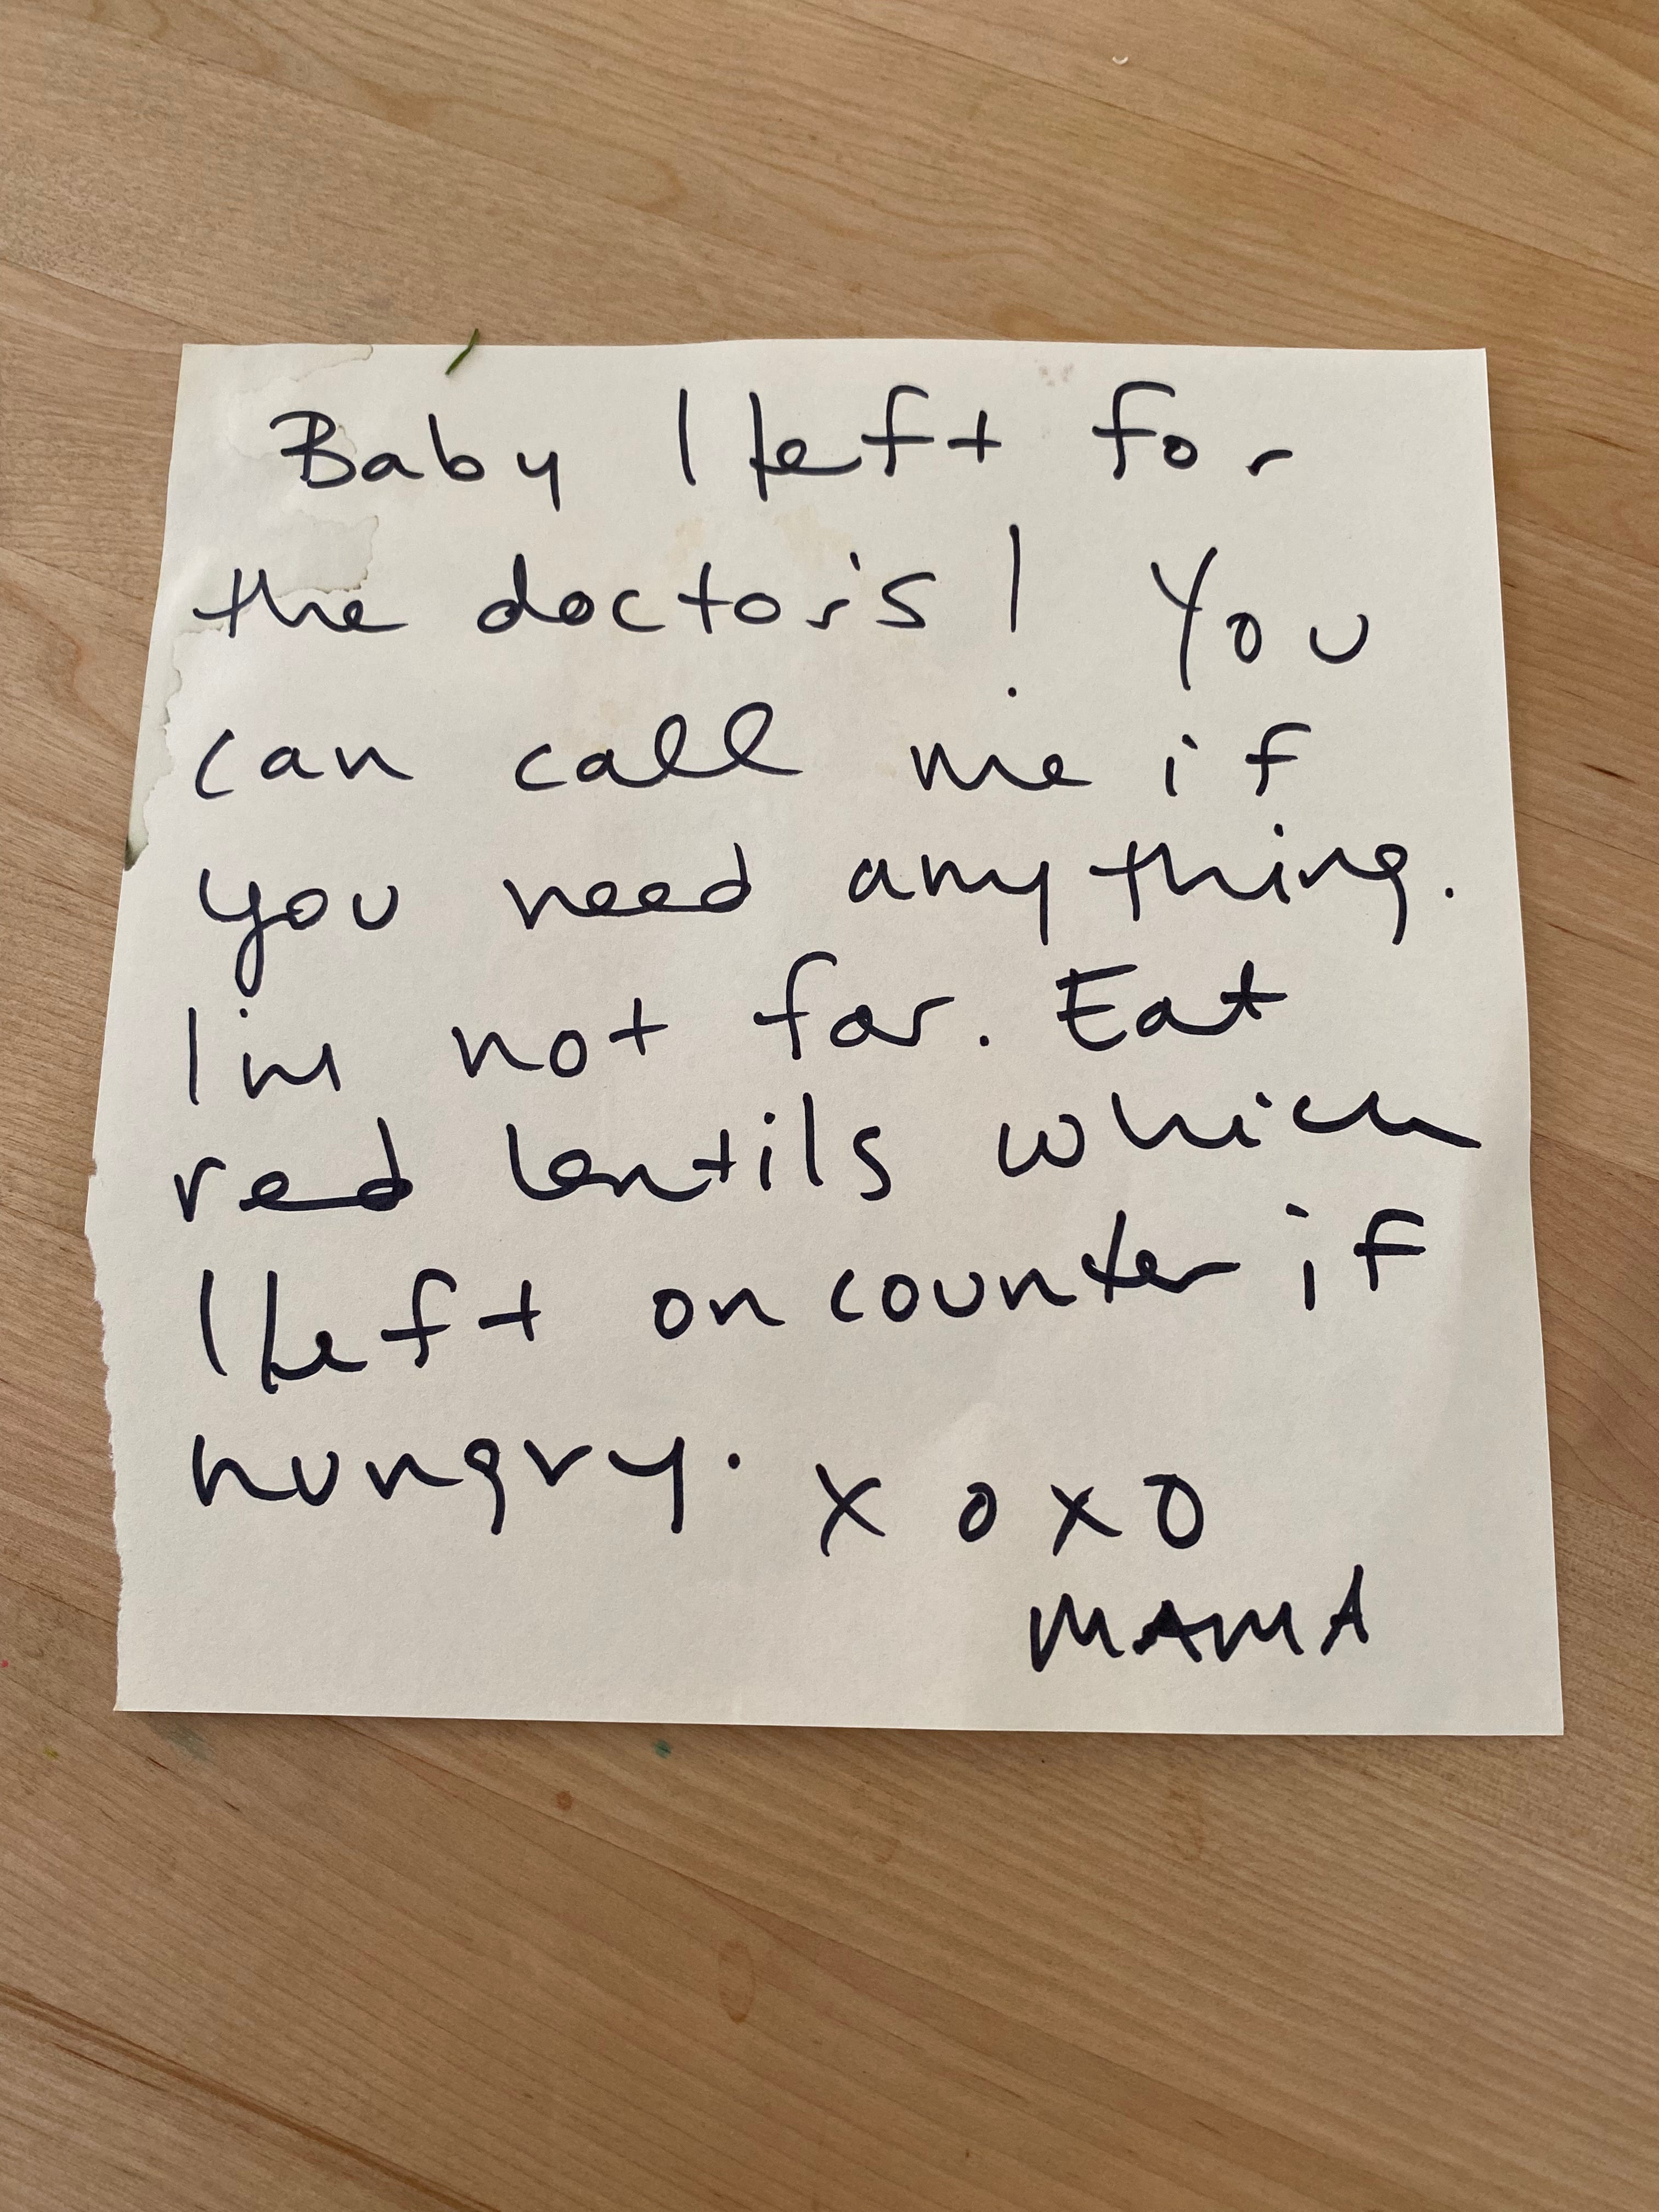 Baby I left for
the doctor's! You
can call me if
you need anything.
I'm not far. Eat
red lentils which
I left on counter if
hungry. xoxo
MAMA